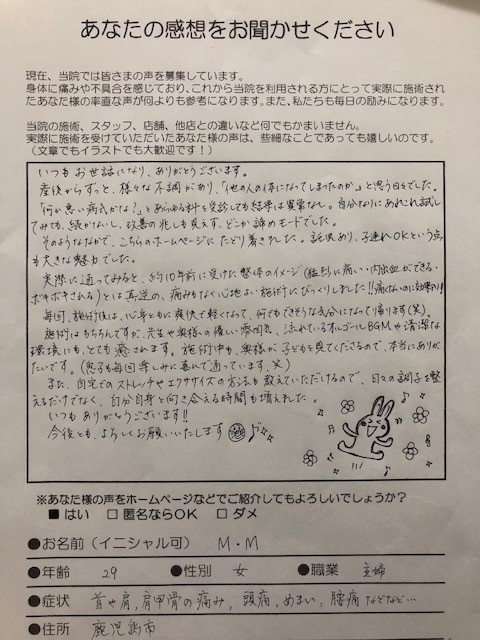 あなたの感想をお聞かせください
現在、当院では皆さまの声を募集しています。
身体に痛みや不具合を感じており、これから当院を利用される方にとって実際に施術され
たあなた様の率直な声が何よりも参考になります。また、私たちも毎日の励みになります。
当院の施術、スタッフ、店舗、他店との違いなど何でもかまいません。
実際に施術を受けていただいたあなた様の声は、些細なことであっても嬉しいのです。
(文章でもイラストでも大歓迎です!)
いつもお世話になり、ありがとうございます。
産後からずっと、様々な不調があり、「他の人の体になってしまったのか」と思う日々でした。
「何か悪い病気かな?」とあらゆる科を受診しても結果は異常なし。自分なりにあれこれ試し
てみても、続かないし、改善の兆しも見えず、どこか諦めモードでした。
そのようななかで、こちらのホームページにたどり着きました。託児あり、子連れOKという点
も大きな魅力でした。
実際に通ってみると、約10年前に受けた整体のイメージ(猛烈に痛い・内出血ができる・
ボキボキされる)とは真逆の、痛みもなく心地よい施術にびっくりしました!!痛くないのに効果あり!
毎回、施術後は、心身ともに爽快で軽くなって、何でもできそうな気分になって帰ります(笑)。
施術はもちろんですが、先生や奥様の優しい雰囲気、流れているオルゴールBGMや清潔な
環境にも、とても癒されます。施術中も、奥様が子どもを見てくださるので、本当にありが
たいです。(息子も毎回楽しみに喜んで通っています、笑)
また、自宅でのストレッチやエクササイズの方法も教えていただけるので、日々の調子を整
えるだけでなく、自分自身と向き合える時間も増えました。
いつもありがとうございます!!
今後とも、よろしくお願いいたします
※あなた様の声をホームページなどでご紹介してもよろしいでしょうか?
■ はい □ 匿名ならOK □ ダメ
●お名前(イニシャル可) M・M
●年齢 29 ●性別 女 ●職業 主婦
●症状 首や肩,肩甲骨の痛み,頭痛,めまい,腰痛などなど…
●住所 鹿児島市